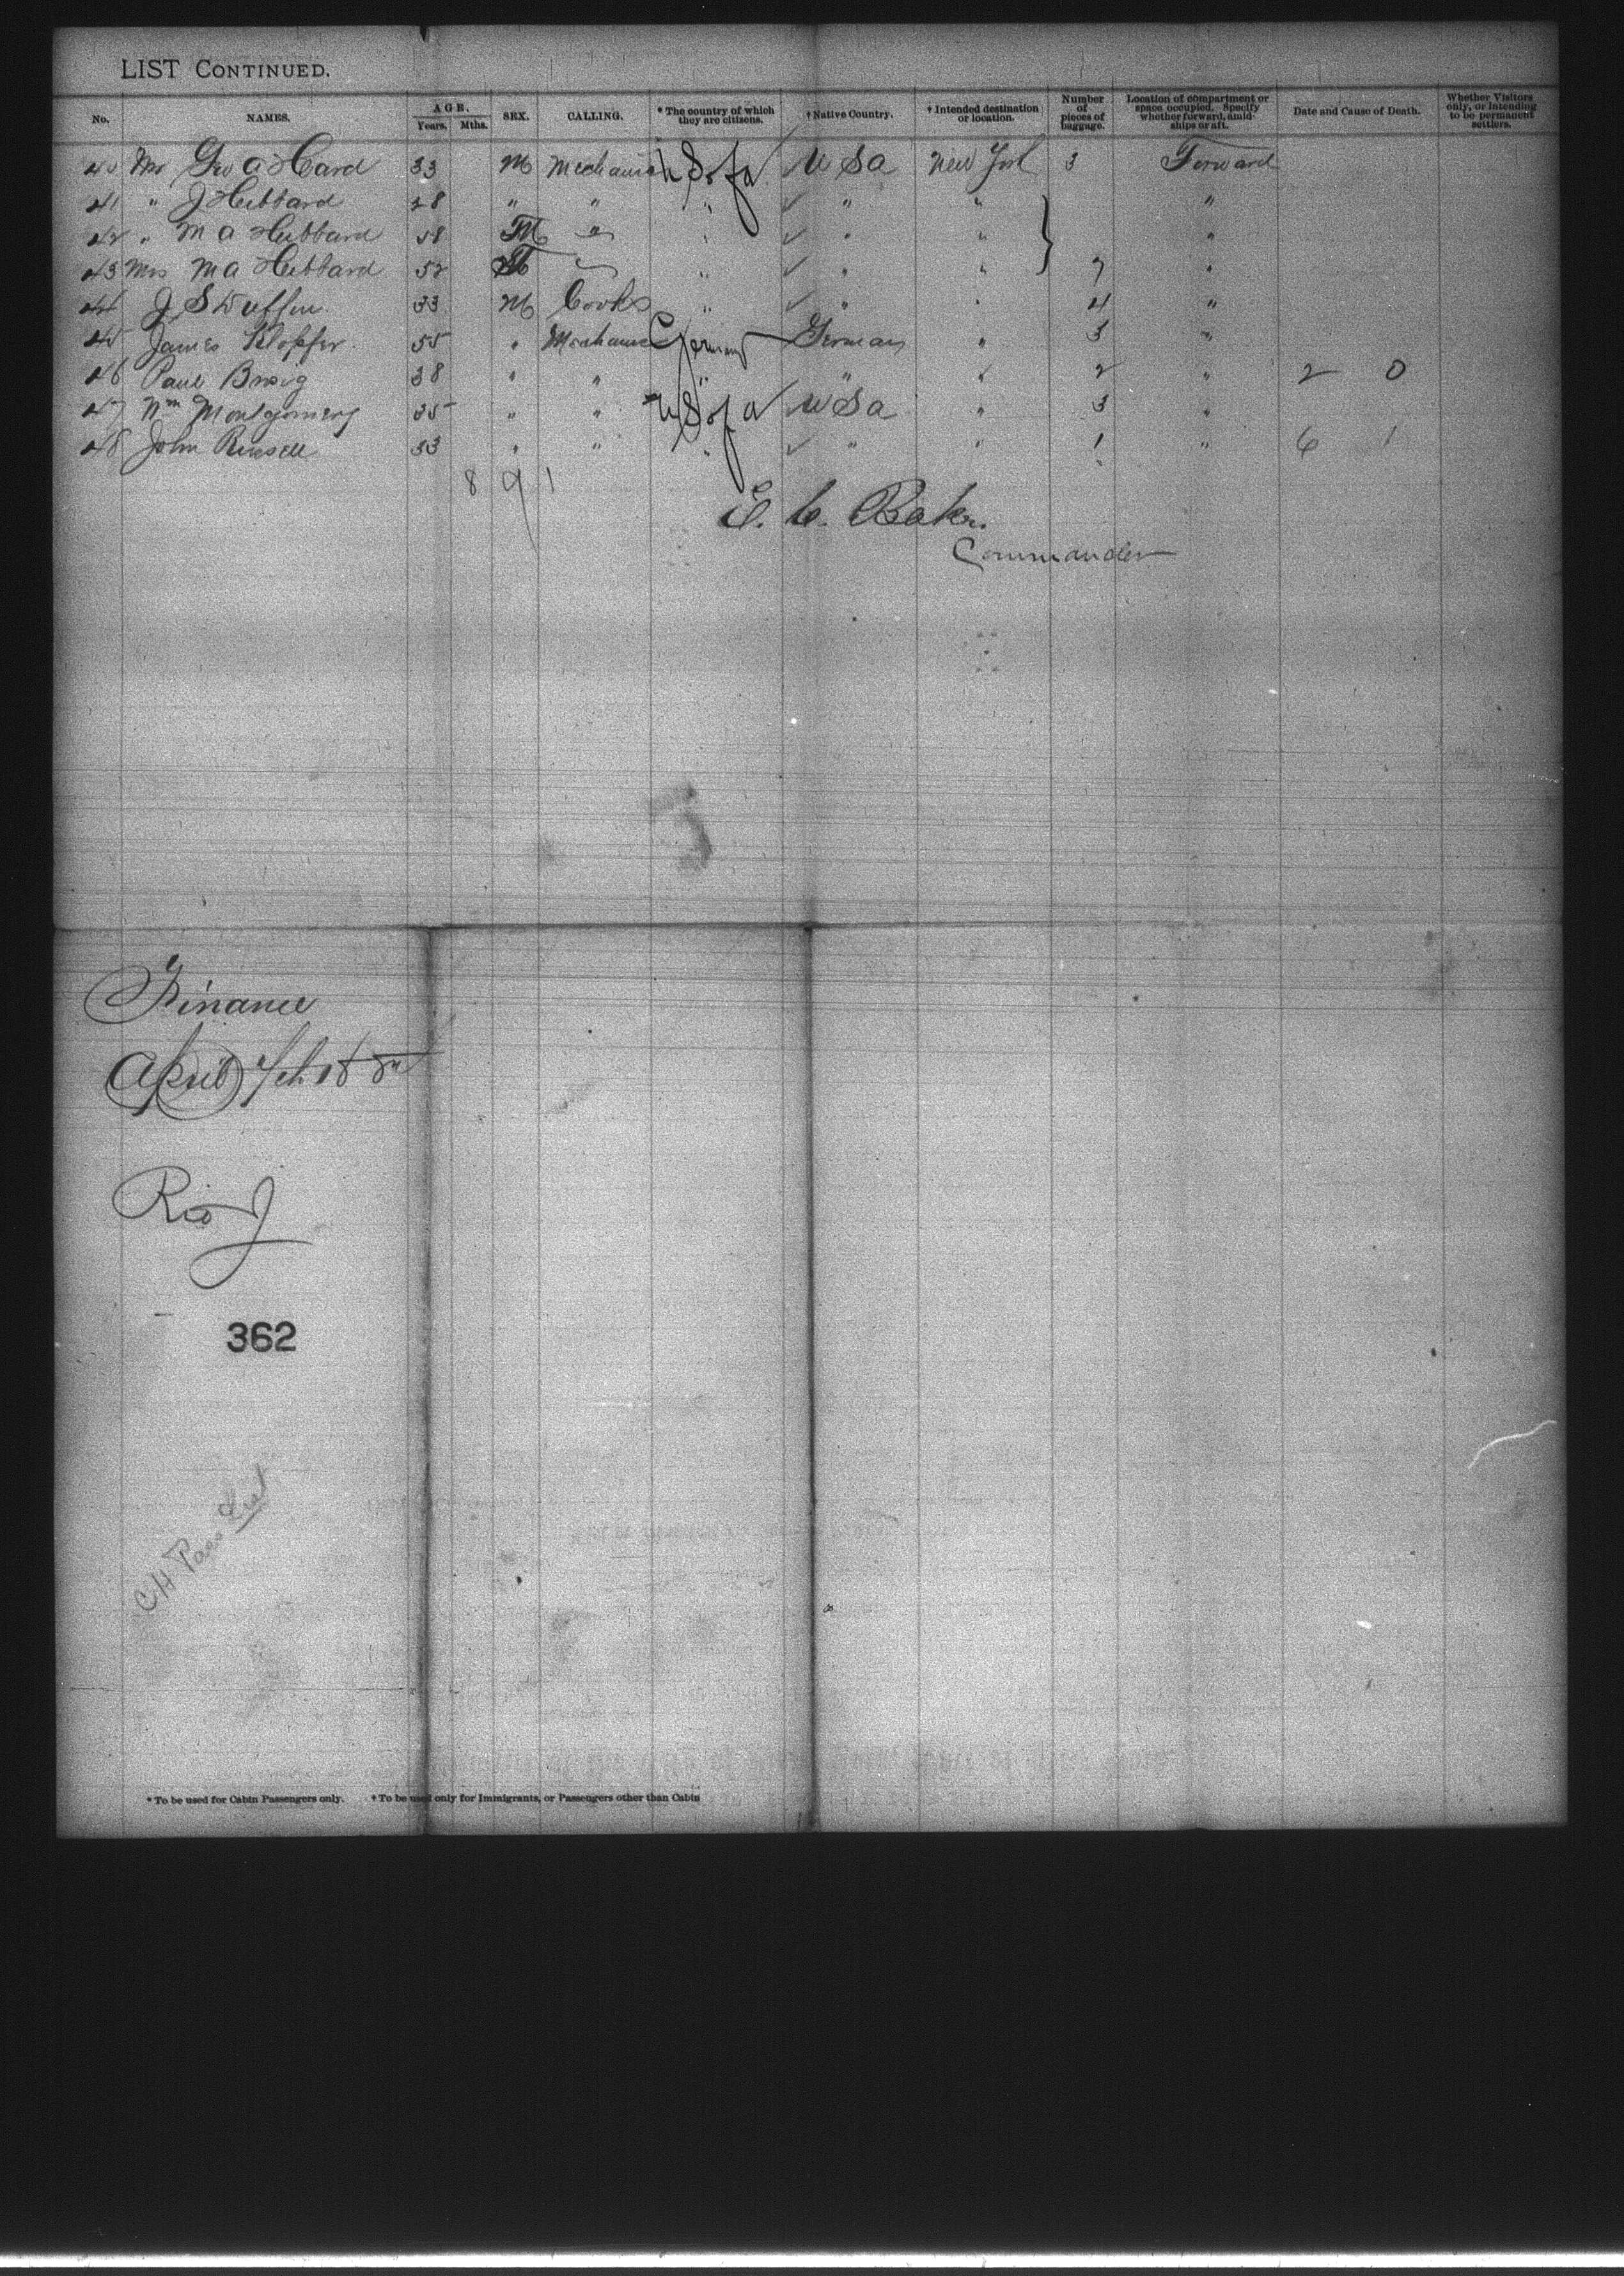 LIST CONTINUED.
No. NAMES. AGE. Years. Mths. SEX. CALLING. * The country of which they are citizens. † Native Country. † Intended destination or location. Number of pieces of baggage. Location of compartment or space occupied. Specify whether forward, amidships or aft. Date and Cause of Death. Whether Visitors only, or intending to be permanent settlers.
40 Mr Geo A Card 33 M Mechanic U S of A U S A New York 3 Forward
41 " J Hibbard 28 " " " " " "
42 " M A Hibbard 58 M " " " " "
43 Mrs M A Hibbard 52 F " " " 7 "
44 J S 33 M Cooks " " " 4 "
45 James Klopfer 55 " Mechanic Germany German " 3 "
46 Paul 38 " " " " " 2 " 2 0
47 Wm Montgomery 35 " " U S of A U S A " 3 "
48 John Russell 33 " " " " " 1 " 6 1
8 9 1
E. C. Baker.
Commander
Finance
April
Rio J
362
CH Pass List
* To be used for Cabin Passengers only. † To be used only for Immigrants, or Passengers other than Cabin